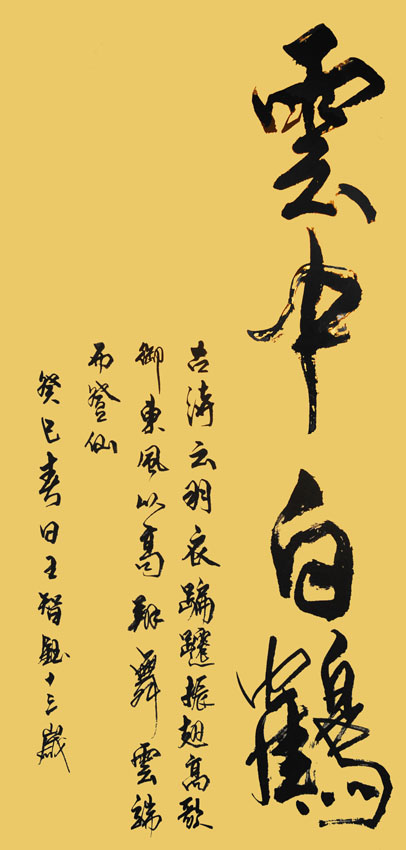 雲中白鶴
古詩云羽衣蹁躚振翅高歌
御東風以高翔舞雲端
而登仙
癸巳春日王智鈺十三歲